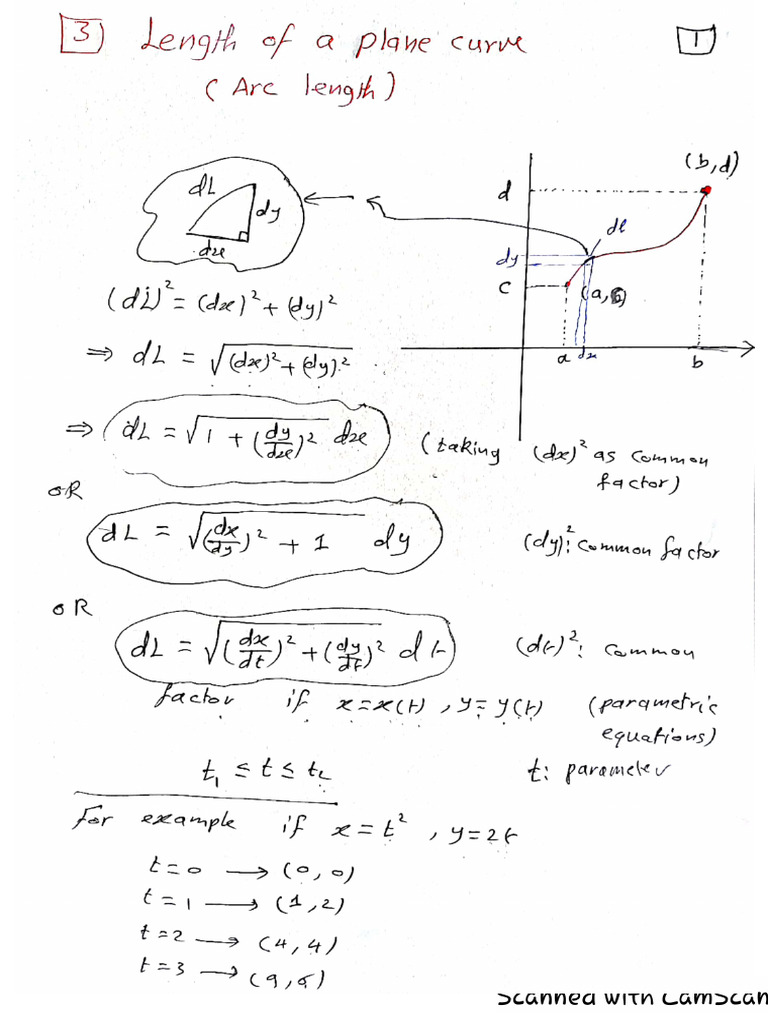 3) Length of a plane curve
1
(Arc length)
(b,d)
d
dL
dy
dx
dl
dy
c
(a,c)
a dx b
(dL)² = (dx)² + (dy)²
⇒ dL = √((dx)² + (dy)²)
⇒ dL = √(1 + (dy/dx)²) dx (taking (dx)² as common factor)
OR
dL = √((dx/dy)² + 1) dy (dy)²: common factor
OR
dL = √((dx/dt)² + (dy/dt)²) dt (dt)²: common
factor if x = x(t), y = y(t) (parametric equations)
t₁ ≤ t ≤ t₂ t: parameter
For example if x = t², y = 2t
t = 0 → (0,0)
t = 1 → (1,2)
t = 2 → (4,4)
t = 3 → (9,6)
Scanned with CamScan